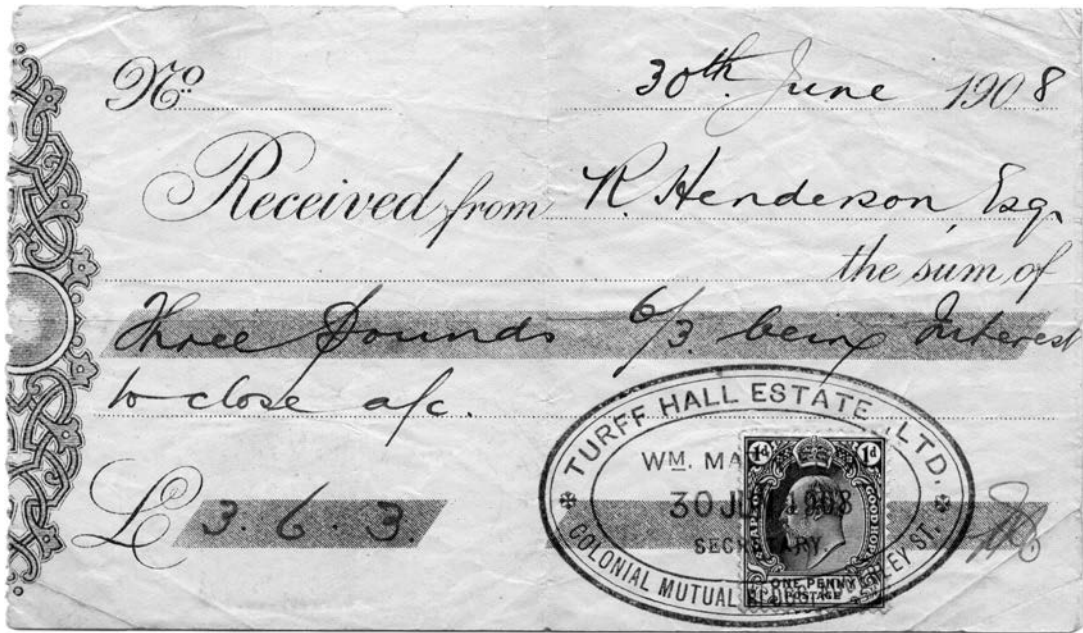 No 30th June 1908
Received from R. Henderson, Esqr
the sum of
Three Pounds 6/3. being Interest
to close a/c.
£ 3. 6. 3.
TURFF HALL ESTATE LTD.
WM. MA
30 JUN 1908
SECRETARY.
COLONIAL MUTUAL LEY ST.
1d 1d
GOOD HOPE
ONE PENNY
POSTAGE